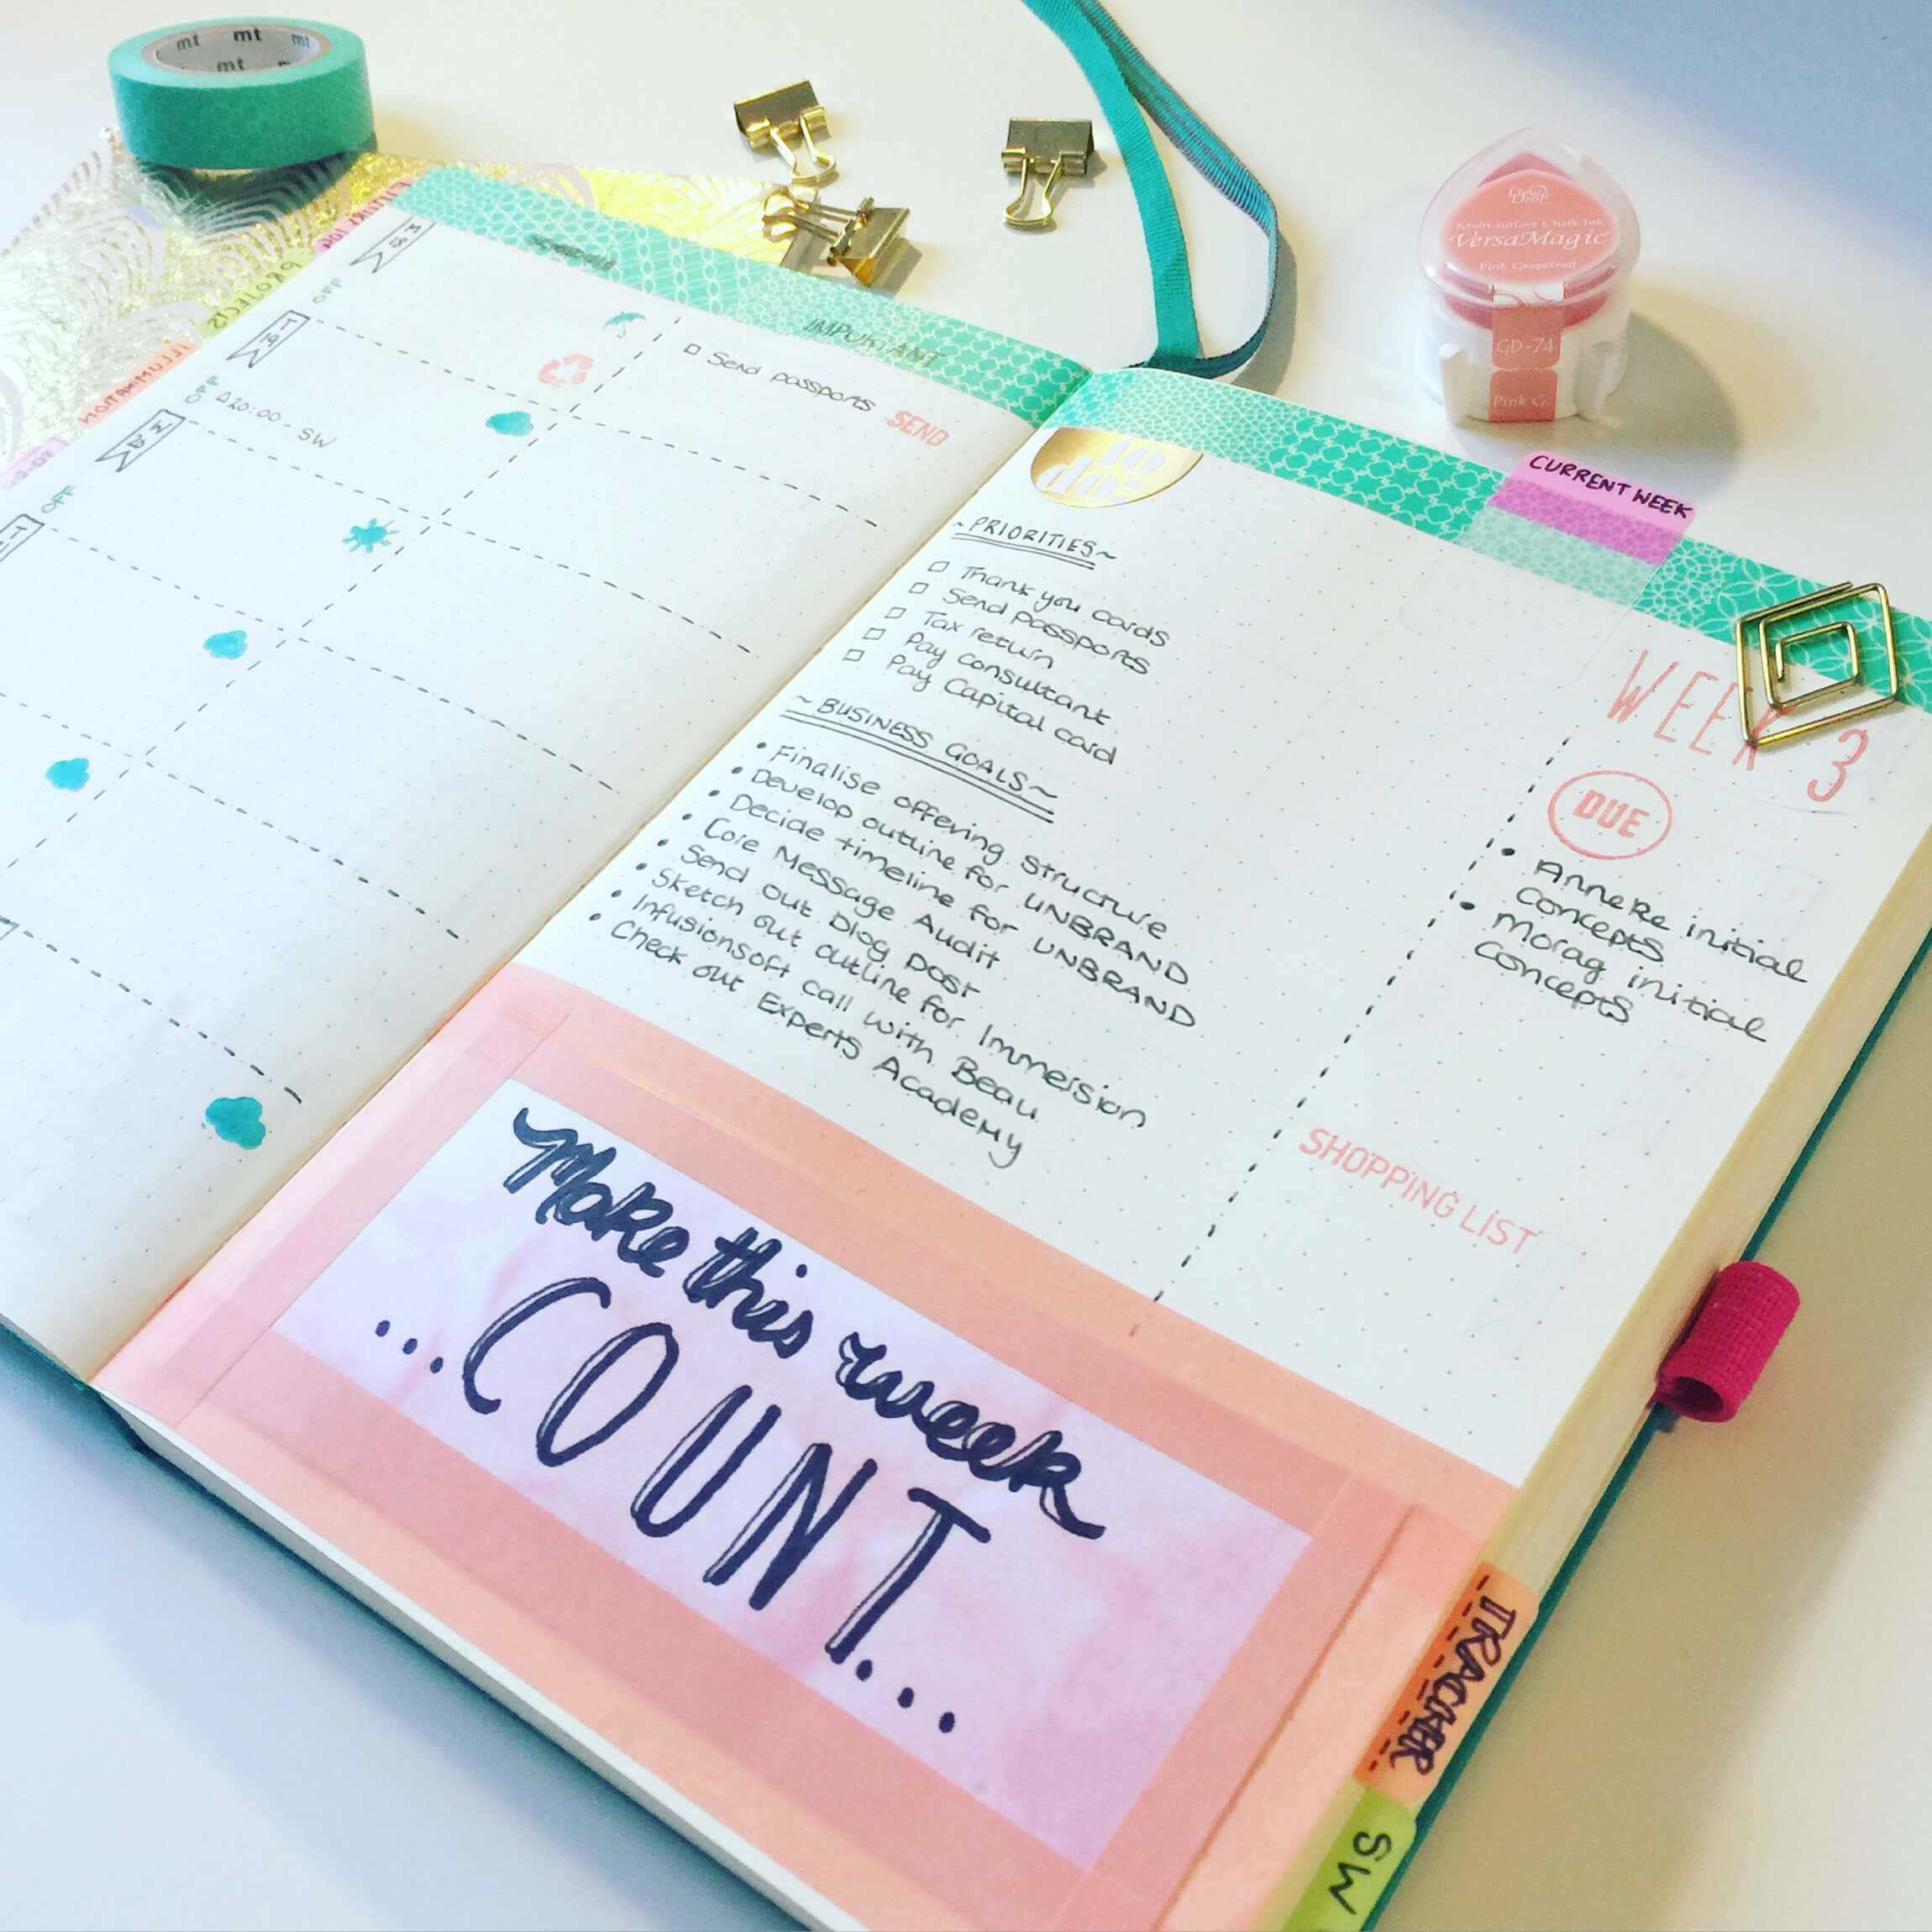 mt mt mt
mt
PROJECTS
OFF
IMPORTANT
Send passports SEND
OFF 20:00 - SW
OFF
Dew Drop
Multi-surface Chalk Ink
VersaMagic
Pink Grapefruit
GD-74
Pink G.
CURRENT WEEK
to
do:
~PRIORITIES~
Thank you cards
Send passports
Tax return
Pay consultant
Pay Capital card
~BUSINESS GOALS~
• Finalise offering structure
• Develop outline for UNBRAND
• Decide timeline for UNBRAND
• Core Message Audit
• Send out blog post
• Sketch out outline for Immersion
• Infusionsoft call with Beau
• Check out Experts Academy
WEEK 3
DUE
• Anneke initial
concepts
• Morag initial
concepts
SHOPPING LIST
Make this week
...COUNT...
TRACKER
SW